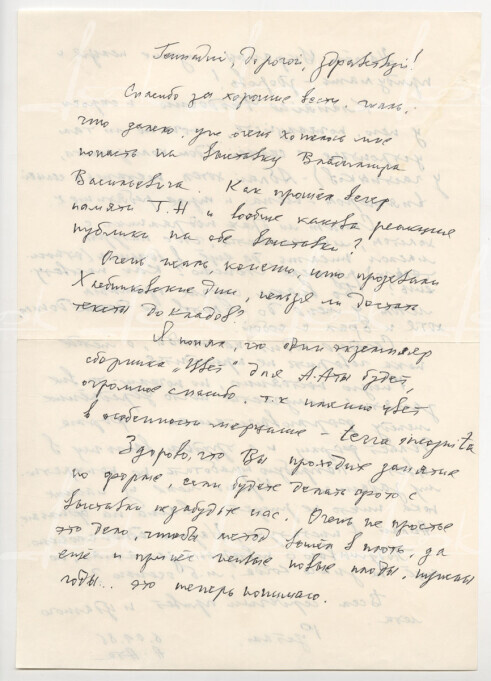 Геннадий, дорогой, здравствуй!
Спасибо за хорошие вести, жаль,
что далеко, уж очень хотелось мне
попасть на выставку Владимира
Васильевича. Как прошёл вечер
памяти Т.Н и вообще какова реакция
публики на обе выставки?
Очень жаль, конечно, что прозевали
Хлебниковские дни, нельзя ли достать
тексты докладов?
Я поняла, что один экземпляр
сборника „Цвет" для А.Аты будет,
огромное спасибо, т.к именно цвет
в особенности мерцание – terra incognita
Здорово, что Вы проводите занятие
по форме, если будете делать фото с
выставки не забудьте нас. Очень не простое
это дело, чтобы метод вошёл в плоть, да
ещё и принёс новые плоды, нужны
годы... это теперь понимаю.